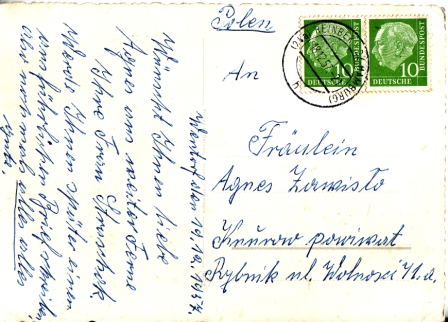 Polen
An
Fräulein
Agnes Zawisto
Knurow powiwat
Rybnik ul. Wolnosci 11.a
10
DEUTSCHE
BUNDESPOST
10
DEUTSCHE
BUNDESPOST
REINBEK
Wentorf den 19.12.1957.
Wünscht Ihnen liebe
Agnes aus weiter Ferne
Ihre Frau
Werde Ihnen später einen
ausführlichen Brief schreiben
Also noch mals alles alles
gute.